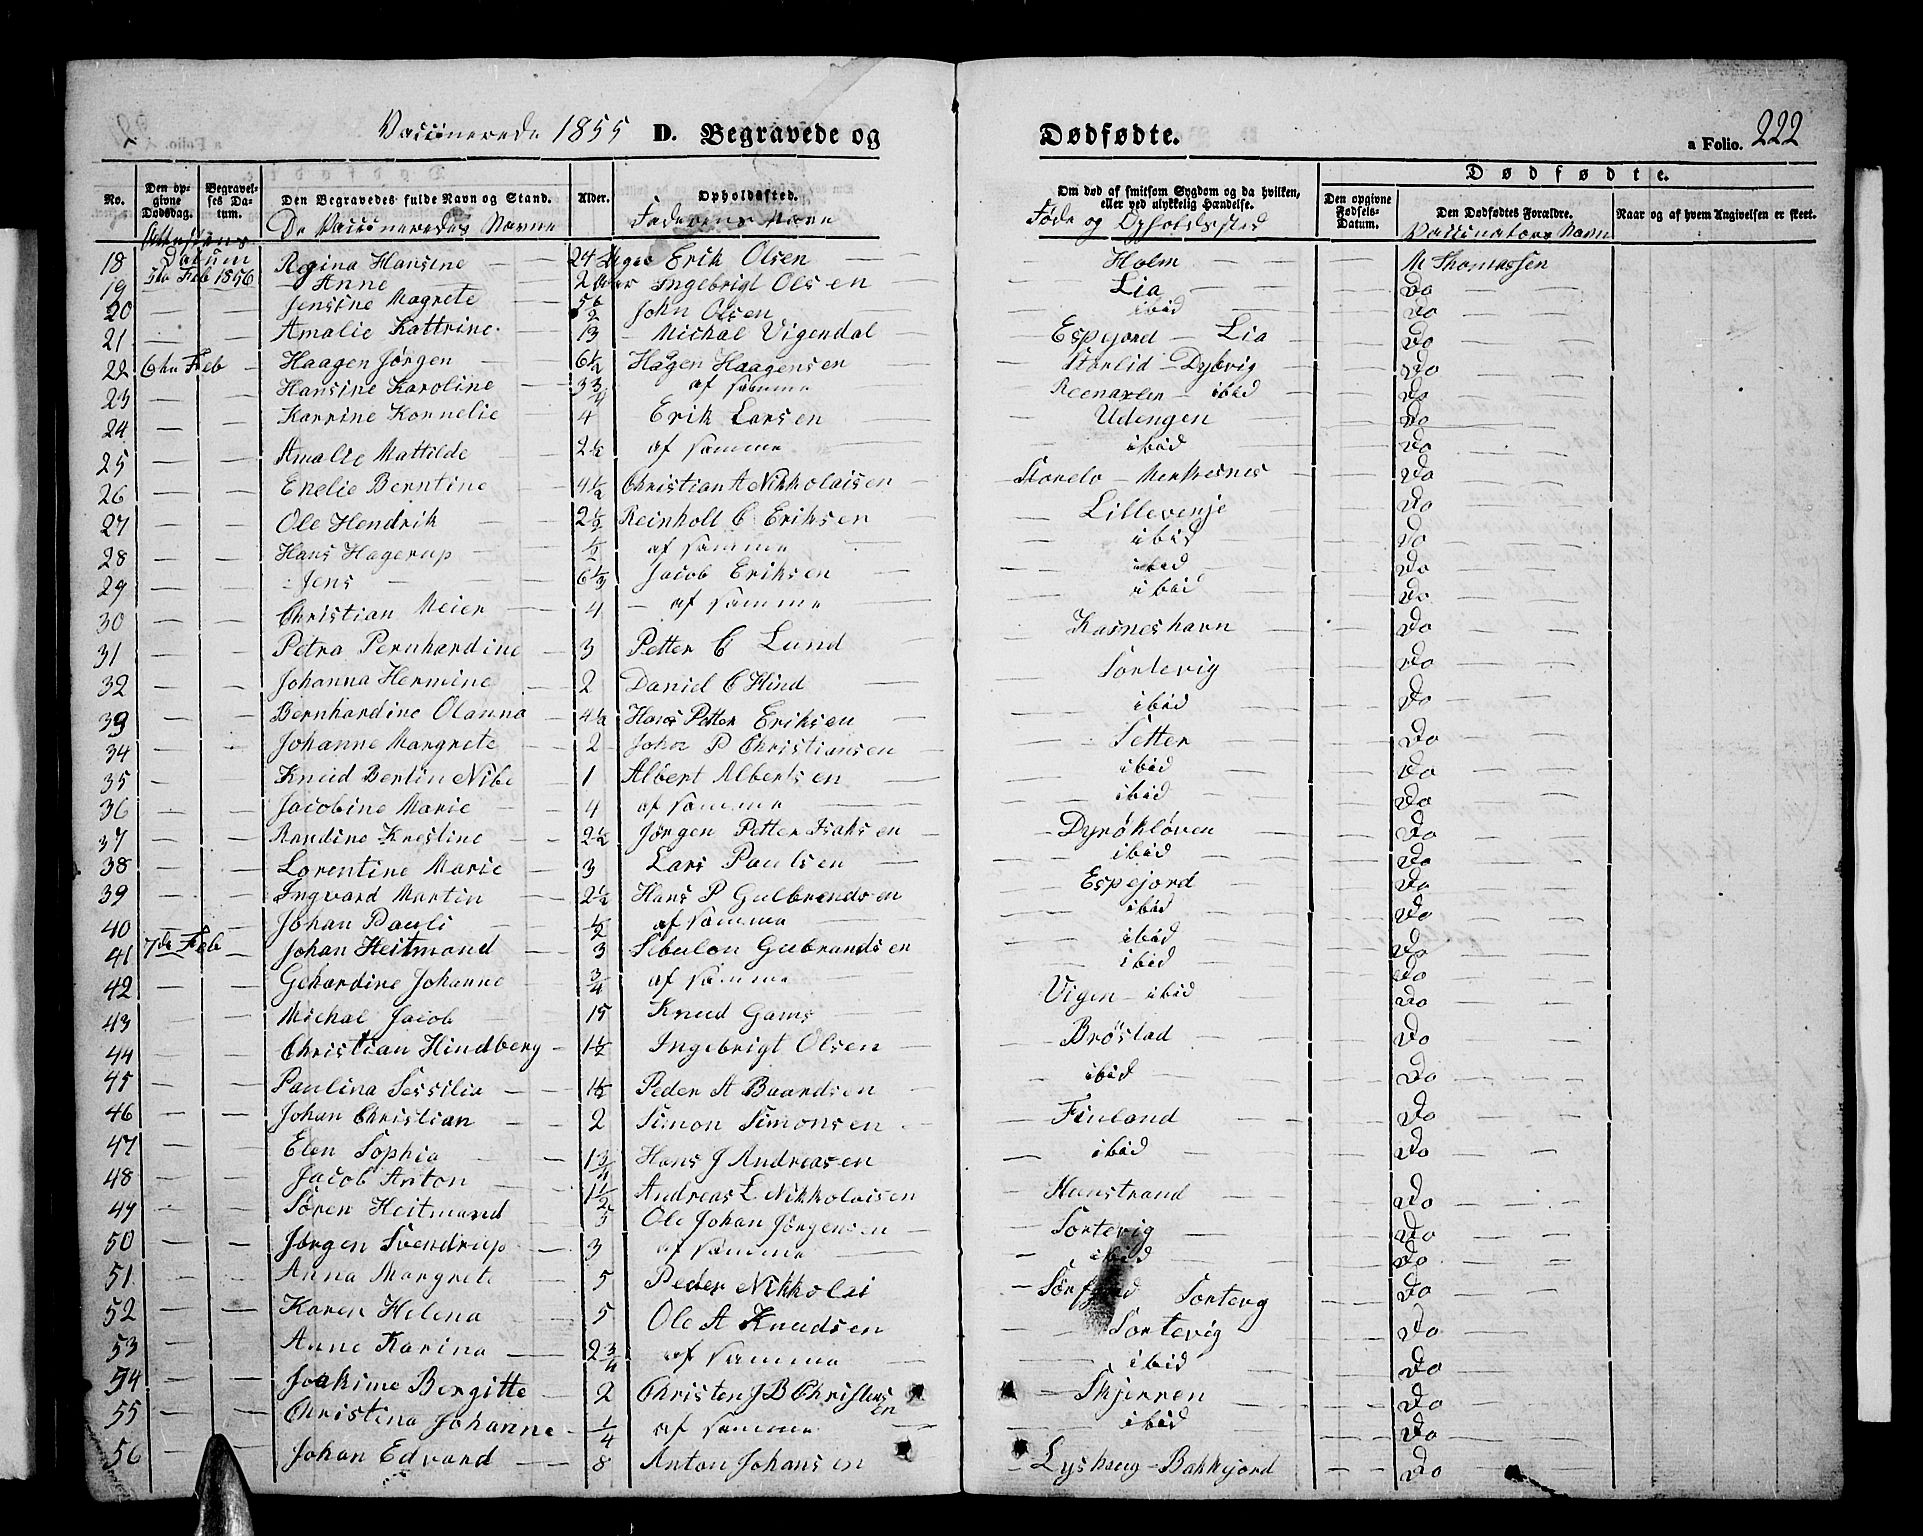 Vaccinerede 1855 D. Begravede og Dødfødte. a Folio. 222
No. Den opgivne Dødsdag. Begravelses Datum. Den Begravedes fulde Navn og Stand. Alder. Opholdssted. Om død af smitsom Sygdom og da hvilken, eller ved ulykkelig Hændelse. Dødfødte. Den opgivne Fødsels-Datum. Den Dødfødtes Forældre. Naar og af hvem Angivelsen er skeet.
Attestens Datum De Vaccineredes Navne Faderens Navn Føde og Opholdssted Vaccinatörs Navn
18 Regina Hansine 24 Uger Erik Olsen Holm M Thomassen
19 5te Feb 1856 Anne 2 Aar Ingebrigt Olsen Lia Do
20 Jensine Magrete 5½ John Olsen ibid Do
21 Amalie Kattrine 13 Michal Vigendal Espejord Lia Do
22 6te Feb Haagen Jørgen 6½ Hågen Haagensen Storlid Dybvig Do
23 Hansine Karoline 3¾ af samme ibid Do
24 Karrine Kornelie 4 Erik Larsen Udengen Do
25 Amalie Mattilde 2½ af samme ibid Do
26 Enelie Berntine 4½ Christian A Nikkolaisen Storelv Do
27 Ole Hendrik 2½ Reinholt C Eriksen Lillevenje Do
28 Hans Hagerup ½ af samme ibid Do
29 Jens 6½ Jacob Eriksen ibid Do
30 Christian Meier 4 af samme ibid Do
31 Petra Pernhardine 3 Petter C Lund Kasneshavn Do
32 Johanna Hermine 2 Daniel C Hind Sortevig Do
33 Bernhardine Olanna 4½ Hans Petter Eriksen ibid Do
34 Johanne Margrete 2 John P Christiansen Setter Do
35 Knud Bertin Nibe 1 Albert Albertsen ibid Do
36 Jacobine Marie 4 af samme ibid Do
37 Randine Krestine 2½ Jørgen Petter Isaksen Dyröklöven Do
38 Lorentine Marie 3 Lars Paulsen ibid Do
39 Ingvard Martin 2½ Hans P Gulbrandsen Espejord Do
40 Johan Pauli ½ af samme ibid Do
41 7de Feb Johan Heitmand 3 Sebulon Gubrandsen ibid Do
42 Gehardine Johanne ¾ af samme ibid Do
43 Michal Jacob 15 Knud Gams Vigen ibid Do
44 Christian Hindberg 1½ Ingebrigt Olsen Bröstad Do
45 Paulina Sessilia 1½ Peder A Baardsen ibid Do
46 Johan Christian 2 Simon Simonsen Finland Do
47 Elen Sophia 1¾ Hans J Andreasen ibid Do
48 Jacob Anton 1½ Andreas L Nikkolaisen Kunstrand Do
49 Søren Heitmand 5 Ole Johan Jørgensen Sortevig Do
50 Jørgen Svendrup 3 af samme ibid Do
51 Anna Margrete 5 Peder Nikkolai Sortevig Do
52 Karen Helena 5 Ole A Knudsen Sortevig Do
53 Anne Karina 2¾ af samme ibid Do
54 Joakime Bergitte 2 Christen J B Christensen Skjerren Do
55 Christina Johanne ¼ af samme ibid Do
56 Johan Edvard 8 Anton Johansen Lyshaug Bakkejord Do